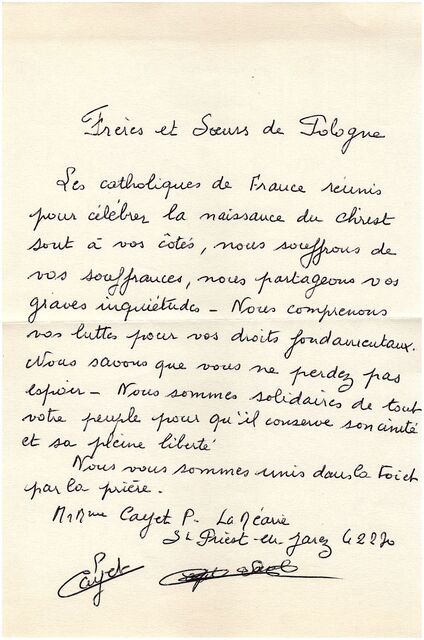 Frères et Sœurs de Pologne
Les catholiques de France réunis
pour célébrer la naissance du Christ
sont à vos côtés, nous souffrons de
vos souffrances, nous partageons vos
graves inquiétudes - Nous comprenons
vos luttes pour vos droits fondamentaux.
Nous savons que vous ne perdez pas
espoir - Nous sommes solidaires de tout
votre peuple pour qu'il conserve son unité
et sa pleine liberté
Nous vous sommes unis dans la Foi et
par la prière.
Mr Mme Cayet P. La
St Priest-en-Jarez 42270
P Cayet